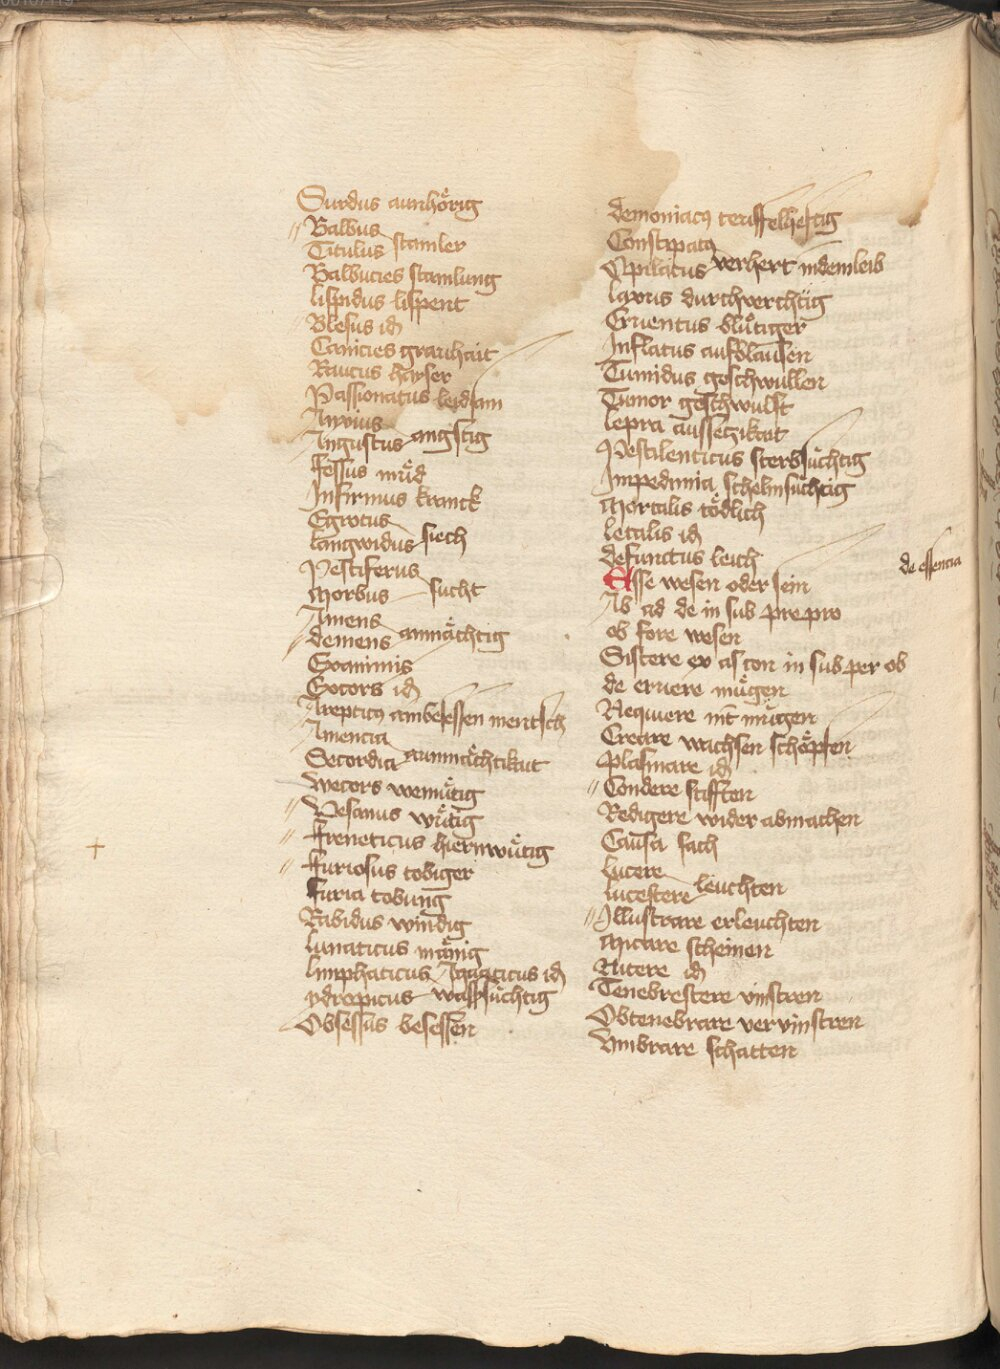 Surdus aunhörig
Balbus
Titulus stamler
Balbucies stamlung
lispidus lispent
Blesus id
Canicies grauhait
Raucus hayser
Passionatus leidsam
Anxius
Angustus angstig
fessus muͤd
Infirmus kranck
Egrotus
langwidus siech
Pestiferus
Morbus sucht
Amens
demens anmächtig
Exanimis
Excors id
Arepticus ambesessen mentsch
Amencia
Secordia aunmächtikait
Wecors wemuͤtig
Vesanus wuͤtig
Freneticus hiernwuͤtig
Furiosus tobiger
Furia tobung
Rabidus windig
lunaticus mänig
limphaticus id
ydropicus wassuͤchtig
Obsessus besessen
demoniacus teuffelheftig
Constipatus
Opilatus verhert indemleib
laxus
Cruentus bluͤtiger
Inflatus aufblausen
Tumidus geschwullen
Tumor geschwulst
lepra aussetzikait
Pestilenticus sterbsuͤchtig
Impedimia schelmsuͤchtig
Mortalis tödlich
letalis id
defunctus leich
Esse wesen oder sein
de essencia
Ab ad de in sub pre pro
ob fore wesen
Sistere ex as con in sub per ob
de eruere muͤgen
Nequiere nit muͤgen
Creare wachsen schöpfen
plasmare id
Condere stifften
Redigere wider abmachen
Causa sach
lucere
lucescere leuchten
Illustrare erleuchten
Micare scheinen
Nitere id
Tenebrescere vinstren
Obtenebrare vervinstren
Vmbrare schatten